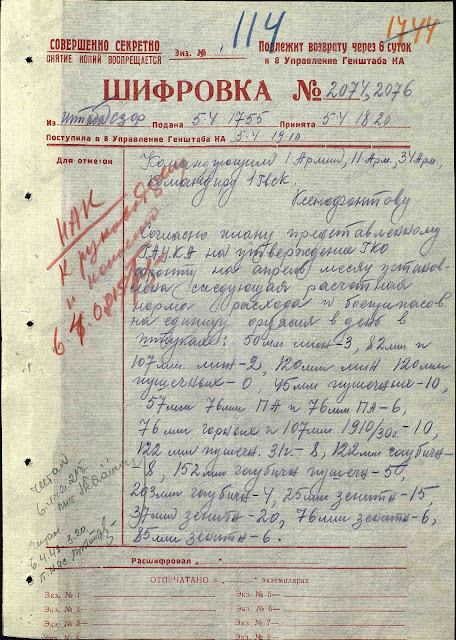 114
1744
СОВЕРШЕННО СЕКРЕТНО
СНЯТИЕ КОПИЙ ВОСПРЕЩАЕТСЯ
Экз. №
Подлежит возврату через 6 суток
в 8 Управление Генштаба КА
ШИФРОВКА № 2074,2076
Из штаба СЗФ Подана 5·4 17 55 Принята 5·4 18 20
Поступила в 8 Управление Генштаба КА 5·4 19 10
Для отметок
Командующим 1 Армии, 11 Арм., 34 Арм.,
командиру 1 Гв СК.
Ксенофонтову
Согласно плану представленному
ГАУ КА на утверждение ГКО
фронту на апрель месяц установ-
лена следующая расчетная
норма расхода боеприпасов
на единицу оружия в день в
штуках: 50мм мин-3, 82мм и
107мм. мин-2, 120мм мин 120мм
пушечных-0, 45мм пушечных-10,
57мм 76мм ПА и 76мм ПА-6,
76мм горных и 107мм 1910/30г.-10,
122мм пушечн. 31г.-8, 122мм гаубичн-
8, 152мм гаубичн пушечн-5,
203мм гаубичн-4, 25мм зенитн-15
37мм зенитн-20, 76мм зенитн-6,
85мм зенитн-6.
НАК
к руков
и
6·4.
Читал
Читал
6.4.42
Расшифровал „ “
ОТПЕЧАТАНО в экземплярах
Экз. № 1— Экз. № 5—
Экз. № 2— Экз. № 6—
Экз. № 3— Экз. № 7—
Экз. № 4— Экз. № 8—